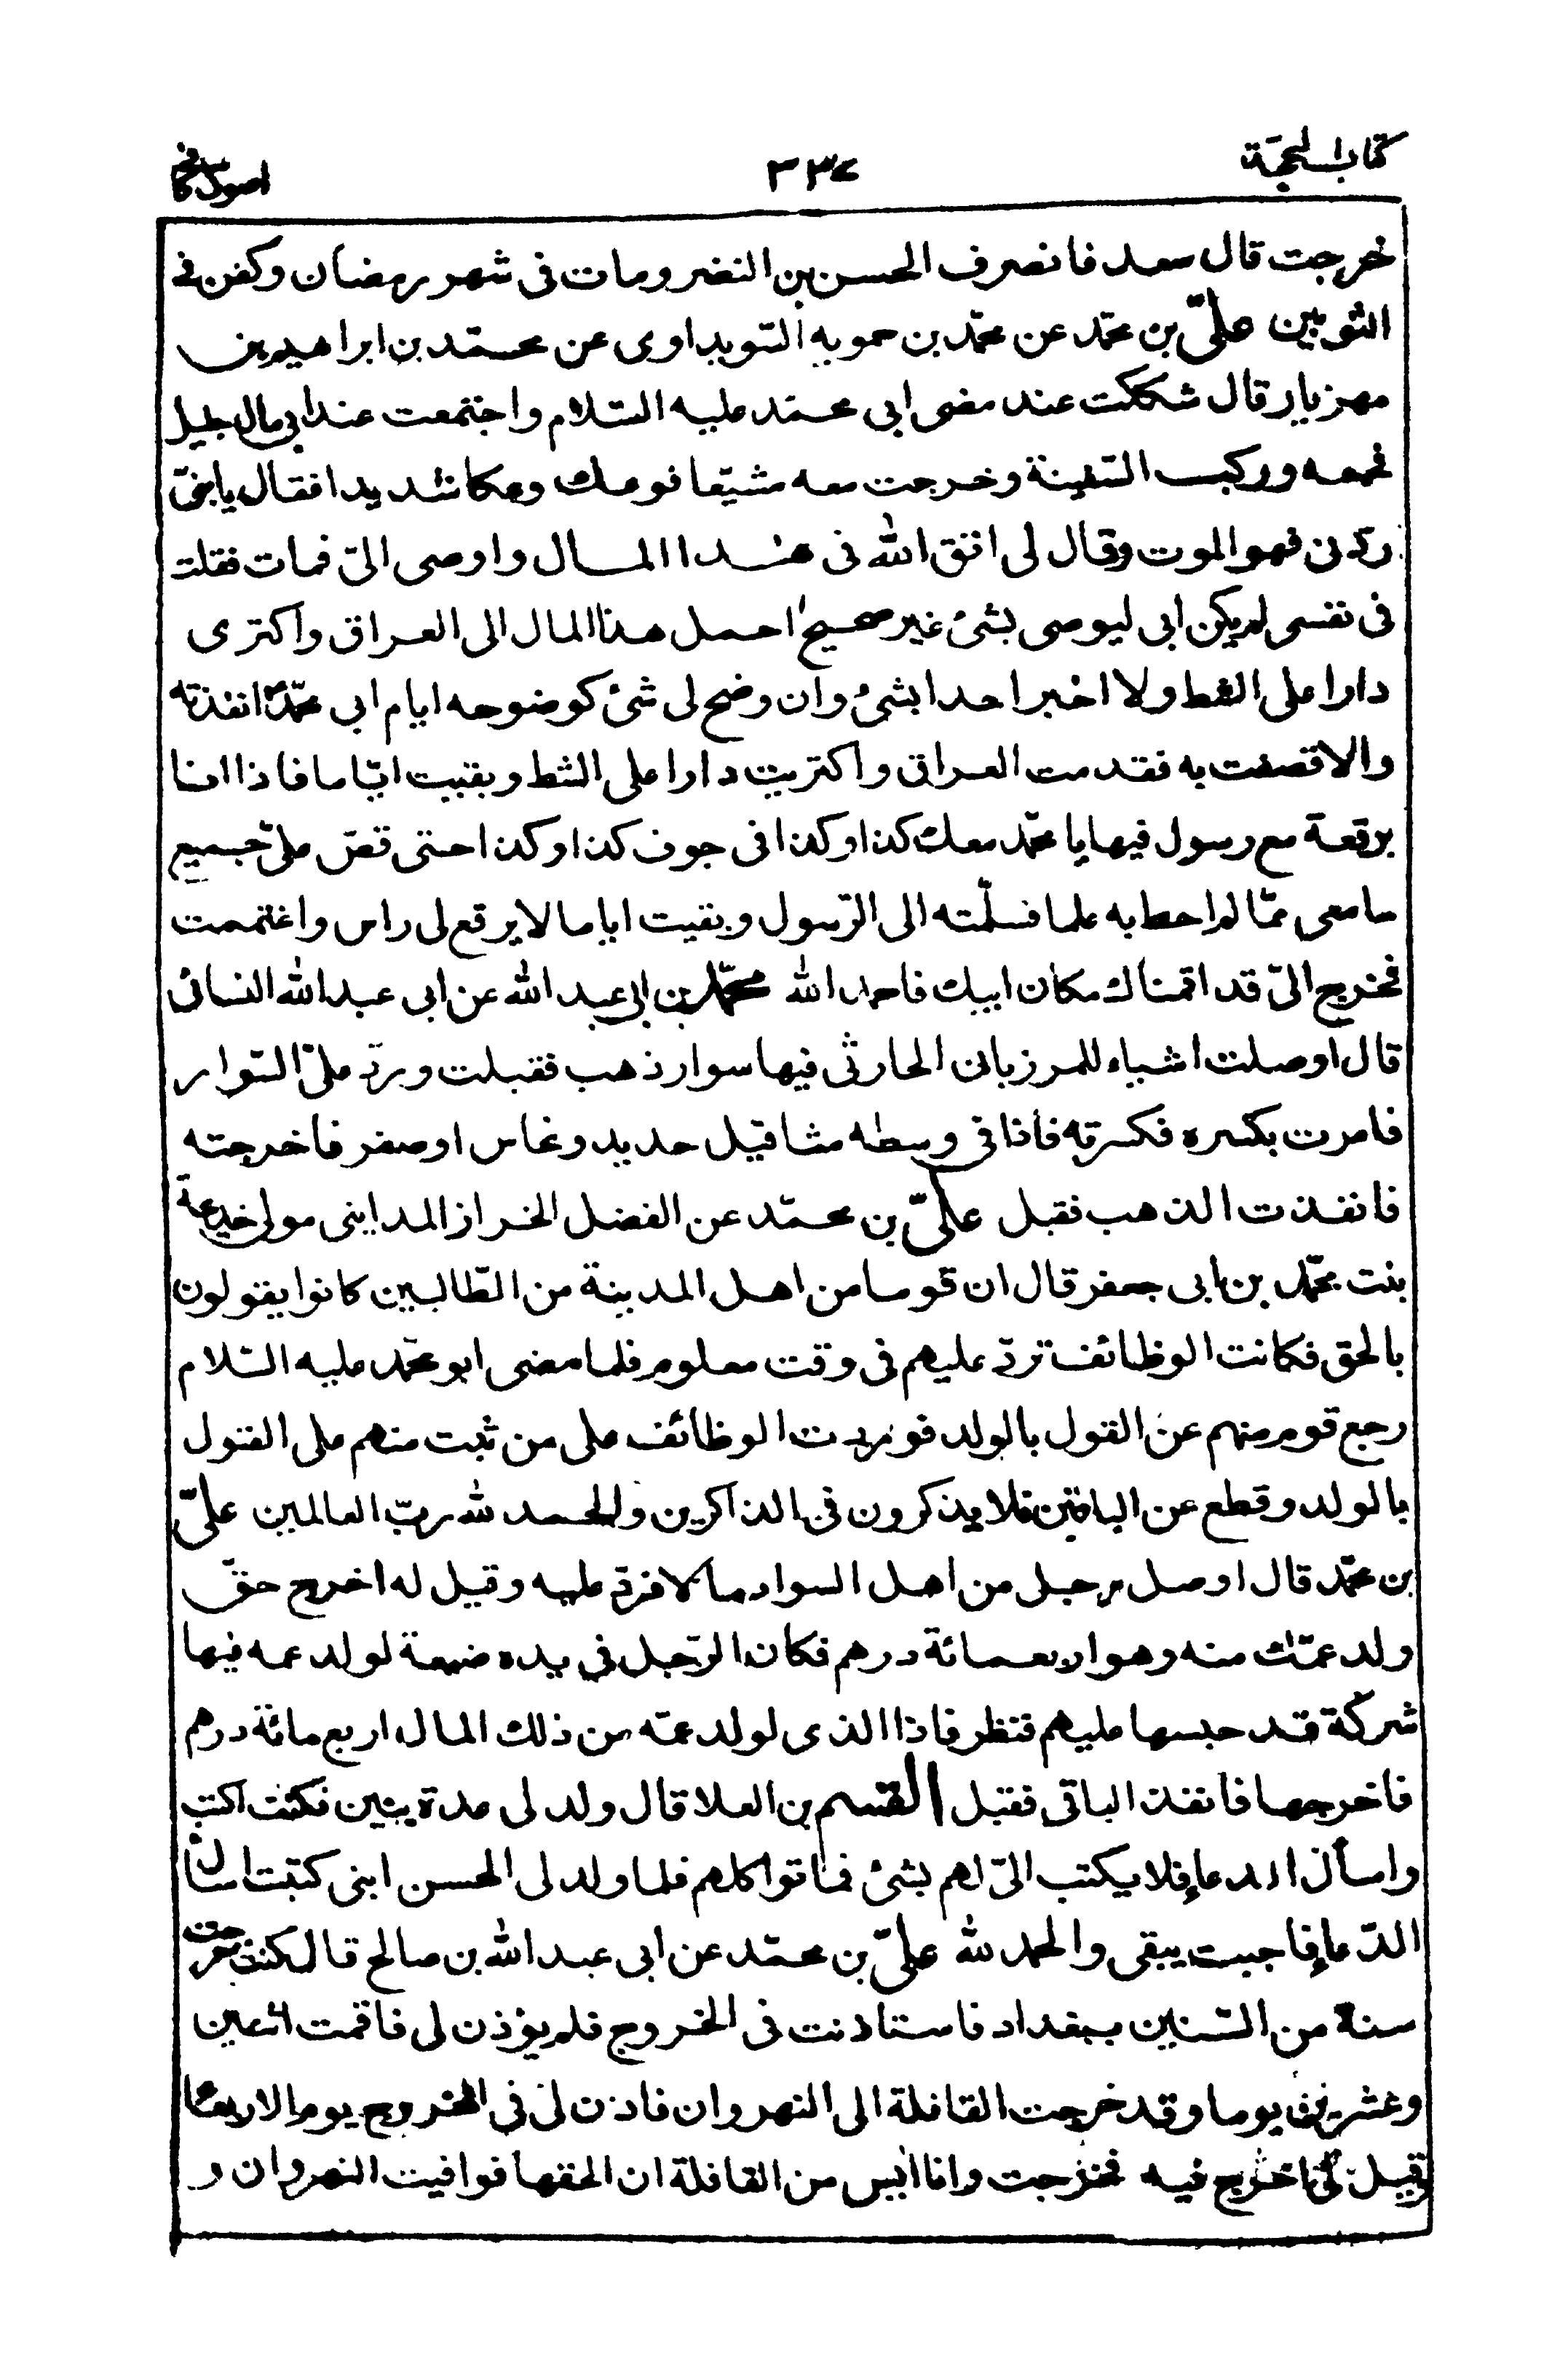 كتاب الحجة
٣٣٧
اصول كافى
خرجت قال سعد فانصرف الحسن بن النضر ومات فى شهر رمضان وكفن فى
الثوبين علىّ بن محمّد عن محمّد بن حمويه السّويداوى عن محمّد بن ابراهيم بن
مهزيار قال شككت عند مضى ابى محمّد عليه السّلام واجتمعت عند ابى مال جليل
فحمعه وركب السّفينة وخرجت معه مشيّعا فوعك وعكا شديدا فقال يا بنىّ
ردّن فهو الموت وقال لى اتق الله فى هذا المال واوصى الىّ فمات فقلت
فى نفسى لم يكن ابى ليوصى بشئ غير صحيح احمل هذا المال الى العراق واكترى
دارا على الشط ولا اخبر احدا بشئ وان وضح لى شئ كوضوحه ايام ابى محمّدؑ انفذته
والا قصفت به فقدمت العراق واكتريت دارا على الشط وبقيت ايّاما فاذا انا
برقعة مع رسول فيها يا محمّد معك كذا وكذا فى جوف كذا وكذا حتى قصّ علىّ جميع
ما معى ممّا لم احط به علما فسلّمته الى الرّسول وبقيت اياما لا يرفع لى راس واغتممت
فخرج الىّ قد اقمناك مكان ابيك فاحمد الله محمّد بن ابى عبد الله عن ابى عبد الله النسائى
قال اوصلت اشياء للمرزبانى الحارثى فيها سوار ذهب فقبلت وردّ علىّ السّوار
فامرت بكسره فكسرته فاذا فى وسطه مثاقيل حديد ونحاس او صفر فاخرجته
فانفذت الذهب فقبل علىّ بن محمّد عن الفضل الخراز المداينى مولى خديجة
بنت محمّد بن ابى جعفر قال ان قوما من اهل المدينة من الطّالبين كانوا يقولون
بالحق فكانت الوظائف تردّ عليهم فى وقت معلوم فلما مضى ابو محمّد عليه السّلام
رجع قوم منهم عن القول بالولد فوردت الوظائف على من ثبت منهم على القول
بالولد وقطع عن الباقين فلا يذكرون فى الذاكرين والحمد لله ربّ العالمين علىّ
بن محمّد قال اوصل رجل من اهل السواد مالا فردّ عليه وقيل له اخرج حقّ
ولد عمّك منه وهو اربعمائة درهم فكان الرّجل فى يده ضيعة لولد عمه فيها
شركة قد حبسها عليهم فنظر فاذا الذى لولد عمّه من ذلك المال اربع مائة درهم
فاخرجها فانفذ الباقى فقبل القسم بن العلا قال ولد لى عدة بنين فكنت اكتب
واسأل الدعاء فلا يكتب الىّ لهم بشئ فماتوا كلهم فلما ولد لى الحسن ابنى كتبت اسأل
الدّعاء فاجبت يبقى والحمد لله علىّ بن محمّد عن ابى عبد الله بن صالح قال كنت خرجت
سنة من السّنين ببغداد فاستاذنت فى الخروج فلم يؤذن لى فاقمت اثنين
وعشرين يوما وقد خرجت القافلة الى النهروان فاذن لى فى الخروج يوم الاربعاء
وقيل لى اخرج فيه فخرجت وانا ايس من القافلة ان الحقها فوافيت النهروان و